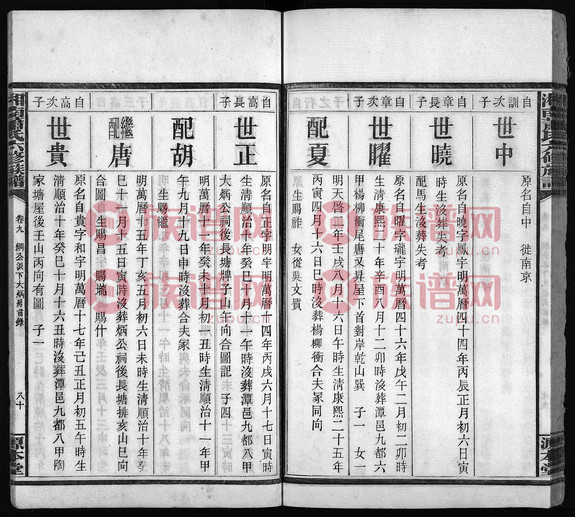 湘南唐氏六修族譜
源本堂
自訓次子
世中
原名自中 徙南京
自章長子
世曉
原名自曉字鳳字明萬曆四十四年丙辰正月初六日寅
時生沒葬失考
配馬生沒葬失考
自章次子
世曜
原名自曜字瓏字明萬曆四十六年戊午二月初二卯時
生清康熙二十年辛酉八月十二卯時沒葬潭邑九都八
甲楊柳衝尾唐又昇屋下首對岸乾山巽 子一 女一
配夏
明天啓二年壬戌八月十六日午時生清康熙二十五年
丙寅四月十六日巳時沒葬楊柳衝合夫冢同向
原生賜祚 女從吳文質
自高長子
世正
原名自正字明萬曆十四年丙戌六月十七日寅時
生清順治十一年甲午十月十一午時沒葬潭邑九都八甲
大炳公祠後長塘牌子山午向合圖記 子四
配胡
明萬曆十二年癸未十月初九丑時生清順治十一年甲
午九月十九日巳時沒葬合夫冢
生賜
繼配唐
明萬曆十五年丁亥五月初六日未時生清順治十八年
巳十二月十五日寅時沒葬炳公祠後長塘排亥山巳向
合圖 生賜昌 賜瑞 賜什
自高次子
世貴
原名自貴字和字明萬曆十七年己丑正月初五午時生
清順治十年癸巳十月十六丑時沒葬潭邑九都八甲陶
家塘屋後壬山丙向有圖 子一
湘南唐氏六修族譜
卷九
八十
源本堂
族譜网
zupu.cn